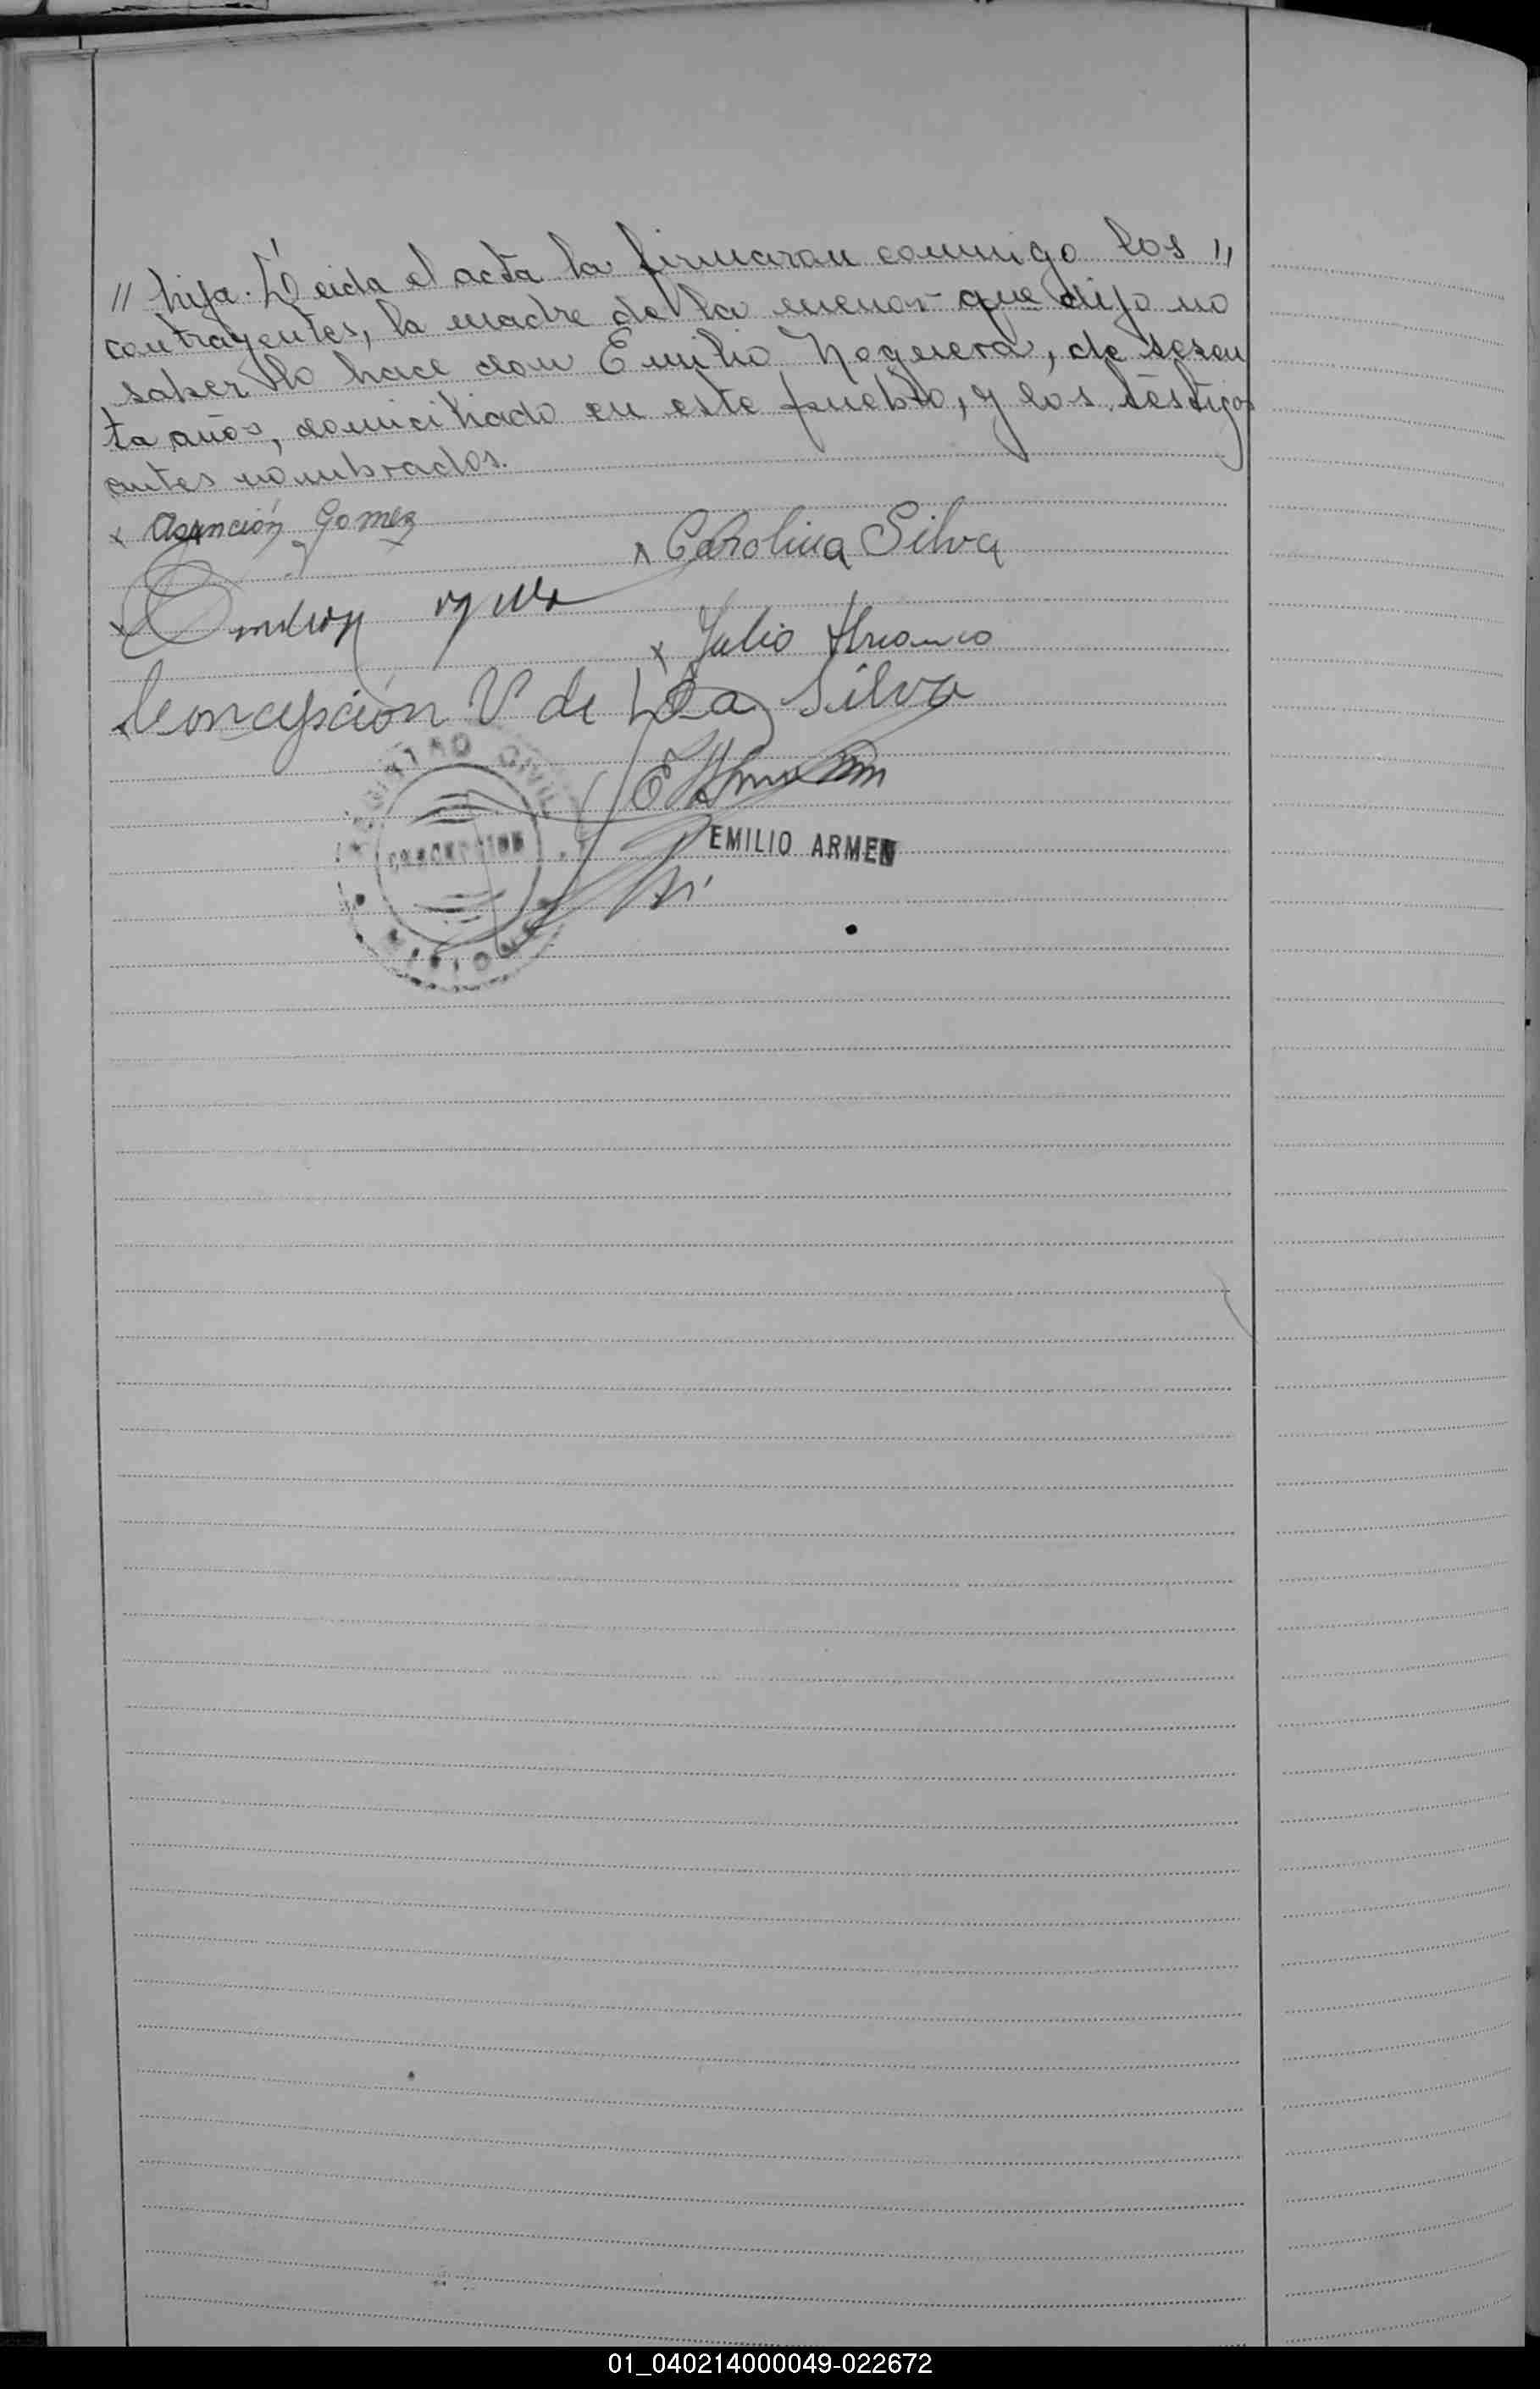 // hija. Leida el acta la firmaran conmigo los //
contrayentes, la madre de la menor que dijo no
saber lo hace don Emilio Noguera, de sesen
ta años, domiciliado en este pueblo, y los testigos
antes nombrados.
x Asunción Gomez
x Carolina Silva
x Julio
Concepción V de Silva
REGISTRO CIVIL
CONCEPCION
MISIONES
EMILIO ARMEN
01_040214000049-022672